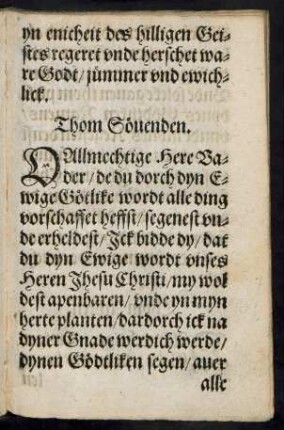 yn enicheit des hilligen Gei-
stes regeret vnde herschet wa-
re Godt / jümmer vnd ewich-
lick.
Thom Söuenden.
O Allmechtige Here Va-
der / de du dorch dyn E-
wige Götlike wordt alle ding
vorschaffet heffst / segenest vn-
de erheldest / Ick bidde dy / dat
du dyn Ewige wordt vnses
Heren Jhesu Christi / my wol
dest apenbaren / vnde yn myn
herte planten / dardorch ick na
dyner Gnade werdich werde /
dynen Gödtliken segen / auer
alle